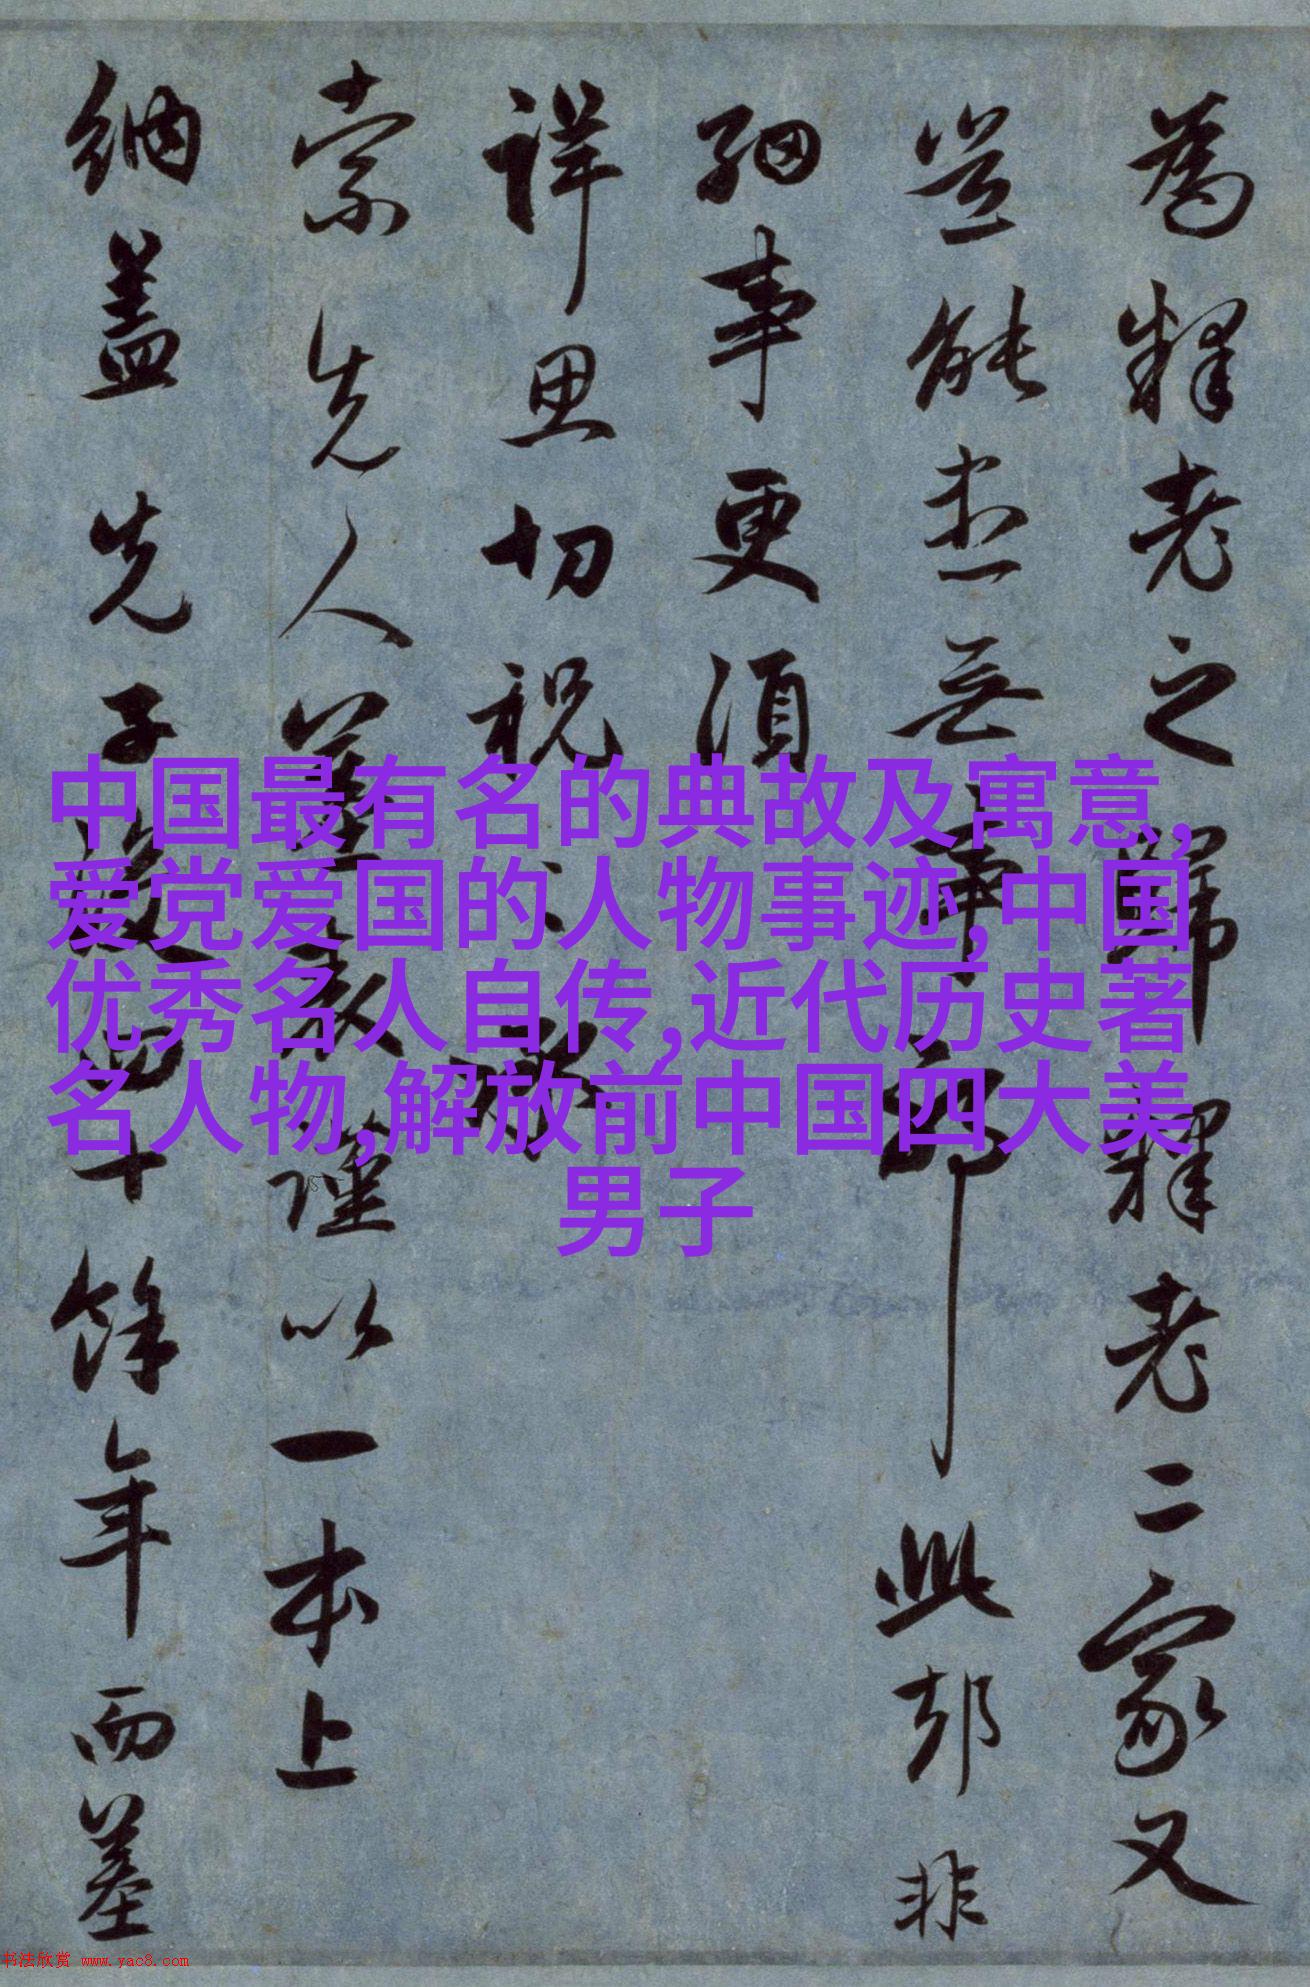 為釋老之歸釋老二家又
豈能無事耶此非
細事更須
詳思切祝
索先人墓謹以一本上
納蓋先子歿四十餘年而墓
中国最有名的典故及寓意,
爱党爱国的人物事迹,中国
优秀名人自传,近代历史著
名人物,解放前中国四大美
男子
书法欣赏 www.yac8.com